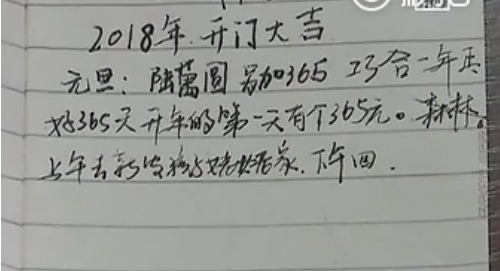 2018年.开门大吉
元旦：陆萬圆 另加365 巧合一年正
好365天 开年的第一天有个365元。
上午去新 家.下午回.